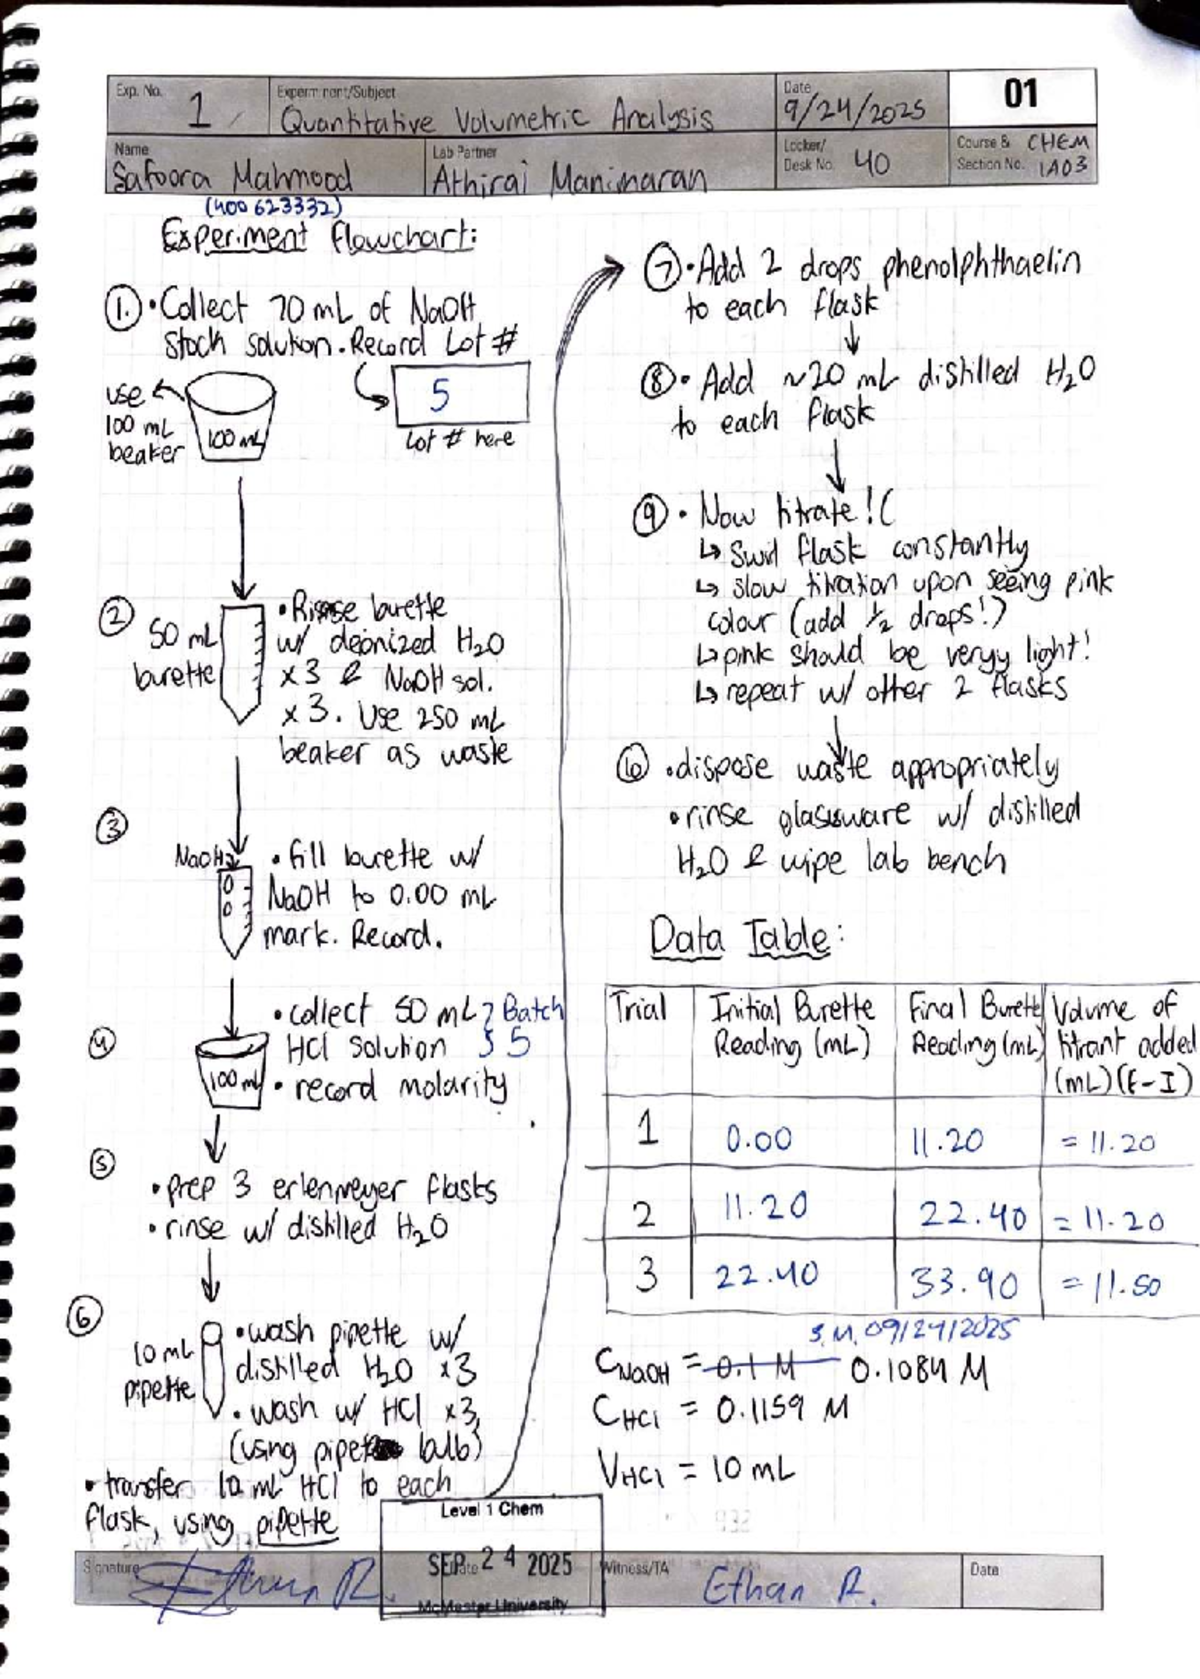 Exp. No. 1
Experiment/Subject
Quantitative Volumetric Analysis
Date
9/24/2025
01
Name
Safoora Mahmood
Lab Partner
Athirai Manimaran
Locker/
Desk No. 40
Course & CHEM
Section No. 1A03
(400623332)
Experiment Flowchart:
1. • Collect 70 mL of NaOH
stock solution. Record Lot #
use
100 mL
beaker
100 mL
5
Lot # here
2
50 mL
burette
• Rinse burette
w/ deionized H2O
x3 & NaOH sol.
x3. Use 250 mL
beaker as waste
3
NaOH
• fill burette w/
NaOH to 0.00 mL
mark. Record.
4
100 mL
• collect 50 mL } Batch
HCl solution } 5
• record molarity
5
• prep 3 erlenmeyer flasks
• rinse w/ distilled H2O
6
10 mL
pipette
• wash pipette w/
distilled H2O x3
• wash w/ HCl x3,
(using pipet bulb)
• transfer 10 mL HCl to each
flask, using pipette
7 • Add 2 drops phenolphthaelin
to each flask
8 • Add ~20 mL distilled H2O
to each flask
9 • Now titrate! (
↳ Swirl flask constantly
↳ slow titration upon seeing pink
colour (add 1/2 drops!)
↳ pink should be veryy light!
↳ repeat w/ other 2 flasks
10 • dispose waste appropriately
• rinse glassware w/ distilled
H2O & wipe lab bench
Data Table:
Trial | Initial Burette Reading (mL) | Final Burette Reading (mL) | Volume of titrant added (mL) (F-I)
1 | 0.00 | 11.20 | = 11.20
2 | 11.20 | 22.40 | = 11.20
3 | 22.40 | 33.90 | = 11.50
S.M. 09/24/2025
CNaOH = 0.1 M 0.1084 M
CHCl = 0.1159 M
VHCl = 10 mL
Level 1 Chem
SEP 24 2025
McMaster University
Signature
Ethan R.
Witness/TA
Ethan R.
Date